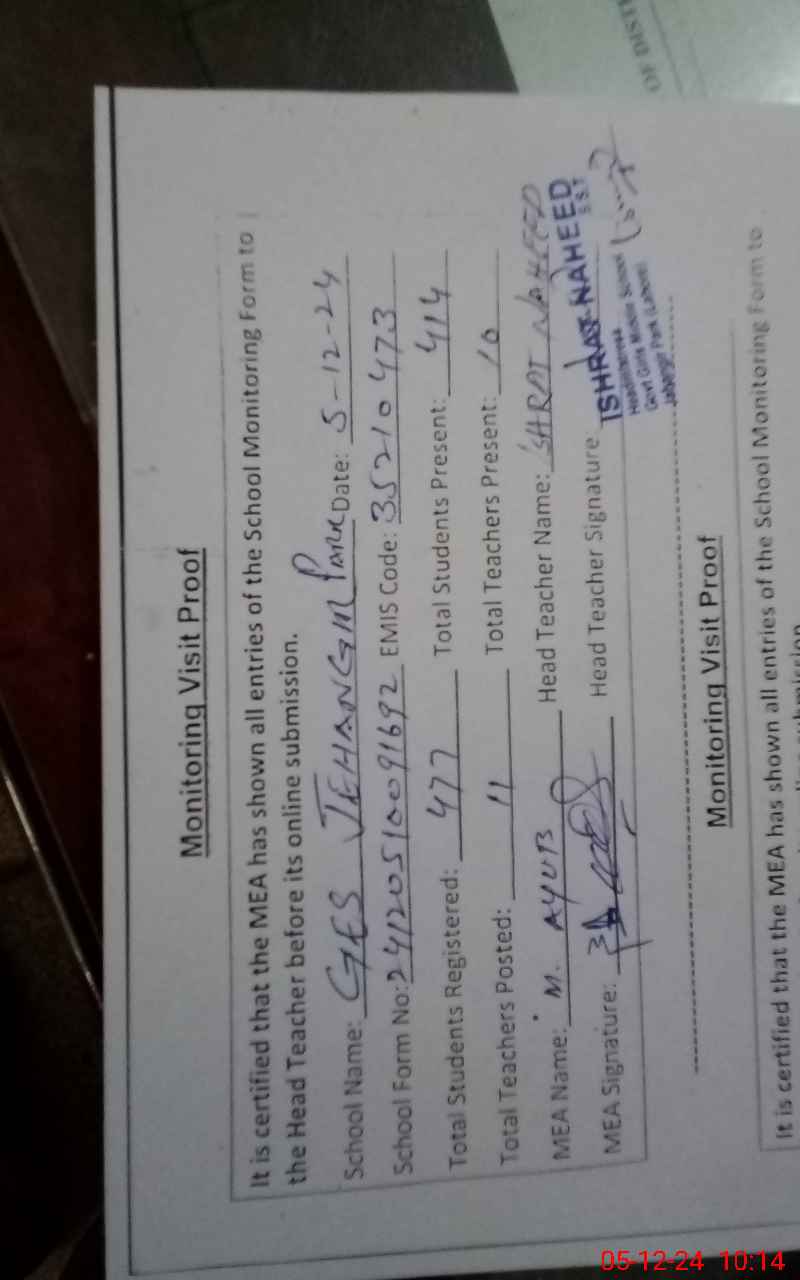 OF DISTR
Monitoring Visit Proof
It is certified that the MEA has shown all entries of the School Monitoring Form to
the Head Teacher before its online submission.
School Name: GES JEHANGIR PARK Date: 5-12-24
School Form No: 24120510091692 EMIS Code: 35210473
Total Students Registered: 477 Total Students Present: 414
Total Teachers Posted: 11 Total Teachers Present: 10
MEA Name: M. AYUB Head Teacher Name: ISHRAT NAHEED
MEA Signature: Head Teacher Signature:
ISHRAT NAHEED
S.S.T
Headmistress
Govt Girls Middle School
Jahangir Park (Lahore)
Monitoring Visit Proof
It is certified that the MEA has shown all entries of the School Monitoring Form to
05-12-24 10:14